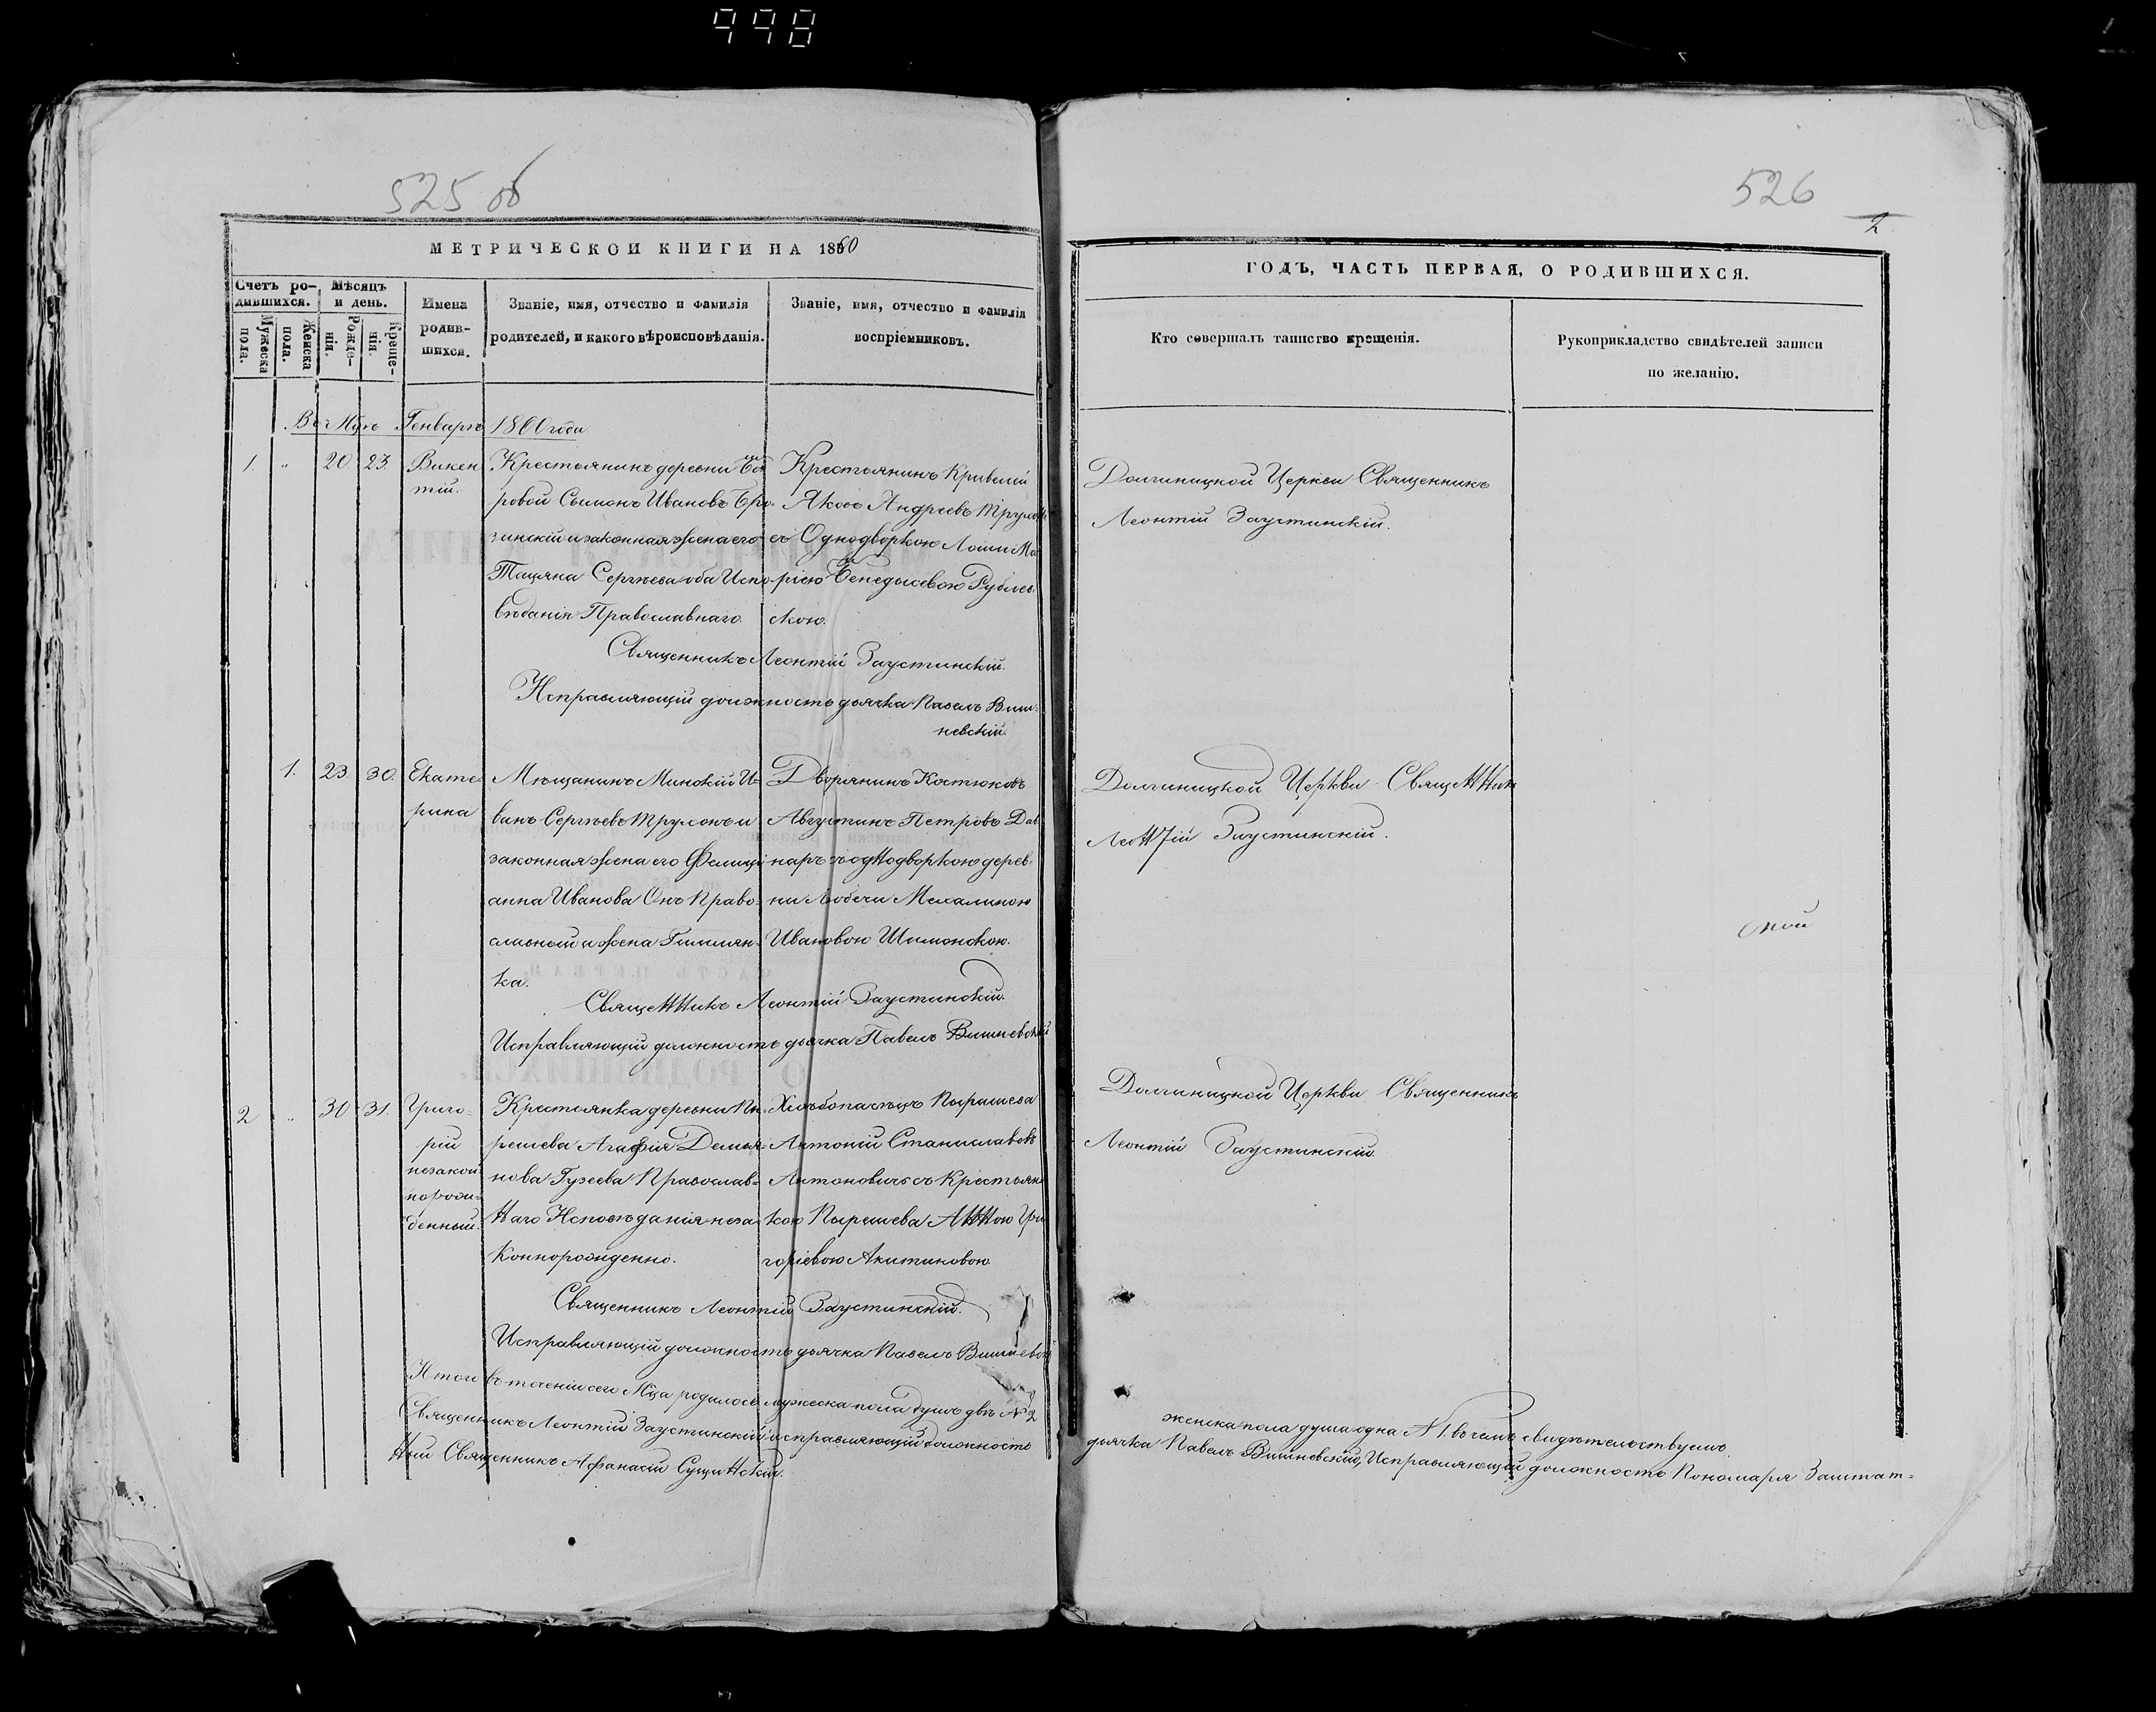 998
525 об
526
2
МЕТРИЧЕСКОЙ КНИГИ НА 1860
ГОДЪ, ЧАСТЬ ПЕРВАЯ, О РОДИВШИХСЯ.
Счетъ ро-
дившихся.
Мужеска
пола.
Женска
пола.
Мѣсяцъ
и день.
Рожде-
нія.
Креще-
нія.
Имена
родив-
шихся.
Званіе, имя, отчество и фамилія
родителей, и какого вѣроисповѣданія.
Званіе, имя, отчество и фамилія
воспріемниковъ.
Кто совершалъ таинство крещенія.
Рукоприкладство свидѣтелей записи
по желанію.
Въ Мцѣ Генварѣ 1860 года
1. „ 20 23.
Викен
тій.
Крестьянинъ деревни
ровой Сымонъ Ивановъ
зинскій и законная жена его
Тацяна Сергѣева оба Испо
вѣданія Православнаго.
Крестьянинъ
Яковъ Андреевъ
съ Однодворкою Лоши Ма
ріею
скою.
Долгиницкой Церкви Священникъ
Леонтій Заустинскій.
Священникъ Леонтій Заустинскій.
Исправляющій должность дьячка Павелъ Виш-
невскій.
1. 23. 30.
Екате
рина
Мѣщанинъ Минскій И-
ванъ Сергѣевъ Трухонъ и
законная жена его Фелици
анна Иванова Онъ Право-
славный а жена Римлян-
ка.
Дворянинъ Костюковъ
Августинъ Петровъ Дав
наръ съ одНодворкою дерев-
ни Любечи Михалиною
Ивановою Шиманскою.
Долгиницкой Церкви СвящеННикъ
ЛеоНТій Заустинскій.
СвящеННикъ Леонтій Заустинскій.
Исправляющій должность дьячка Павелъ Вишневскій
2 „ 30 31.
Григо-
рій
незакон
норож-
денный.
Крестьянка деревни Пы-
решева Агафія Демья-
нова Гузеева Православ-
Наго Исповѣданія неза-
коннорожденно.
Хлѣбопашецъ Пырашева
Антоній Станиславовъ
Антоновичъ съ Крестьян
кою Пырешева АННою Гри
горіевою Акитиковою
Долгиницкой Церкви Священникъ
Леонтій Заустинскій.
Священникъ Леонтій Заустинскій.
Исправляющій должность дьячка Павелъ Вишневскій
Итого въ теченіи сего Мца родилось мужеска пола душъ двѣ № 2
женска пола душа одна № 1. въ чемъ свидѣтельствуемъ.
Священникъ Леонтій Заустинскій исправляющій должность
дьячка Павелъ Вишневскій, Исправляющій должность Пономаря Заштат-
Ный Священникъ Афанасій СущиНскій.